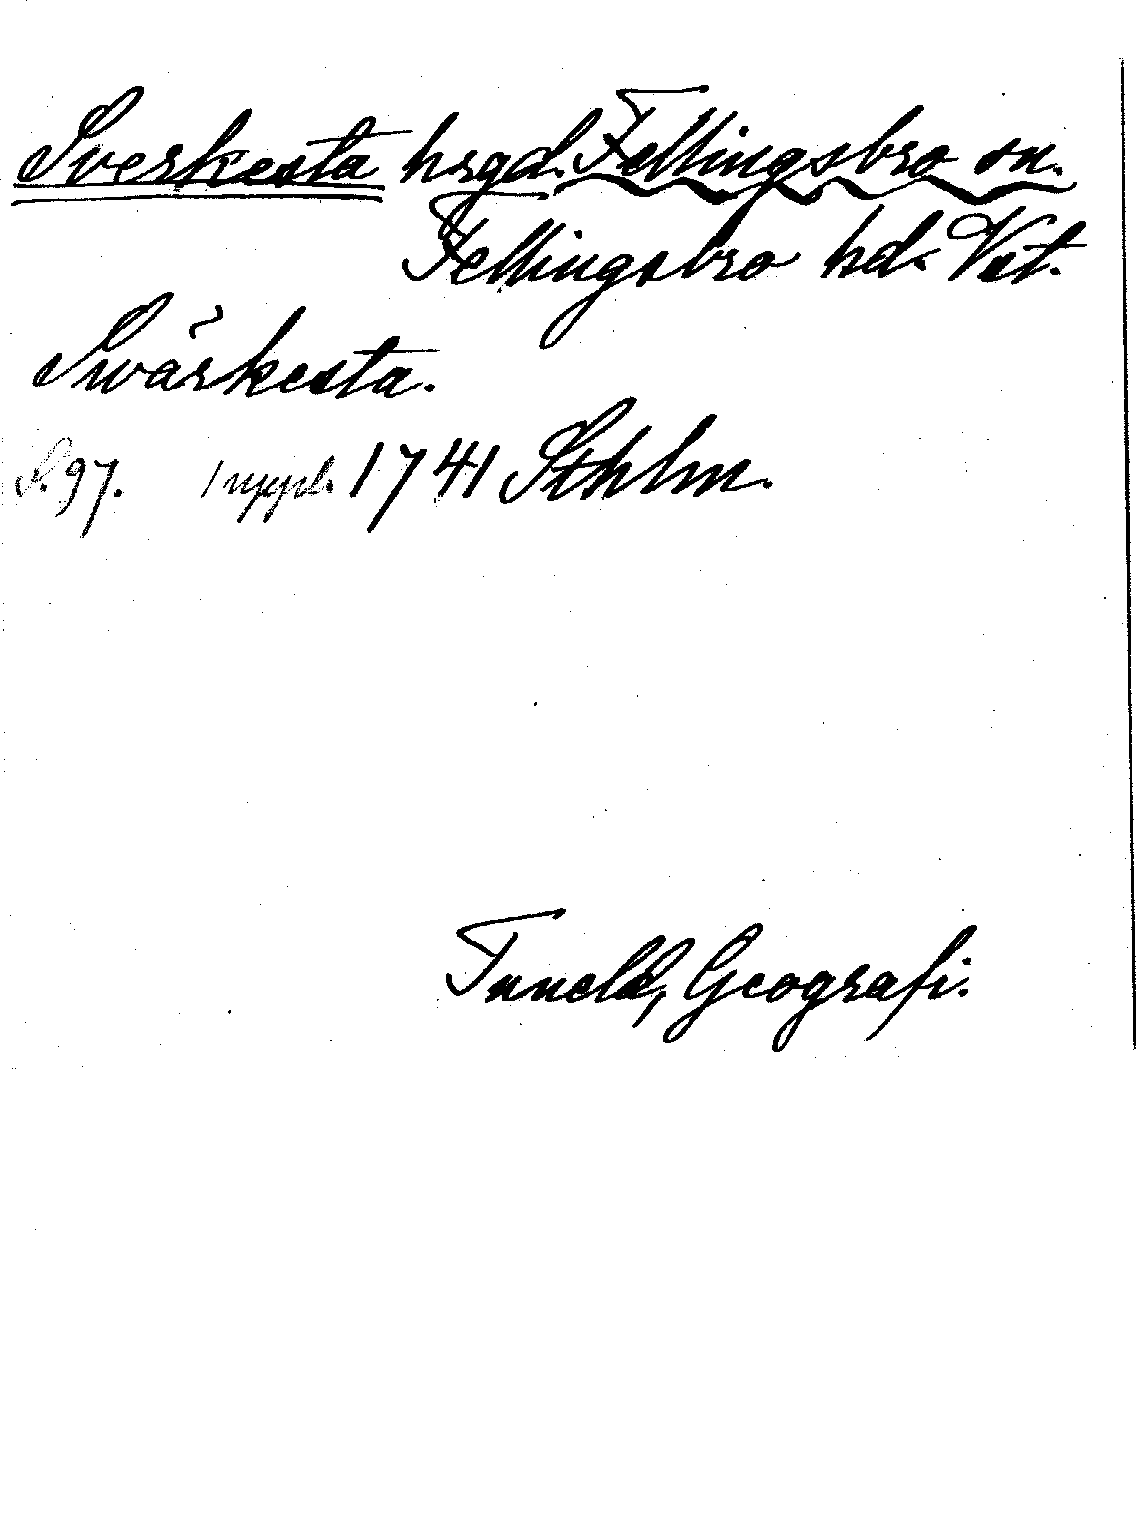 Sverkesta hrgd. Fellingsbro sn.
Fellingsbro hd. Vst.
Swärkesta.
S. 97. 1 uppl. 1741 Sthlm.
Tuneld, Geografi.